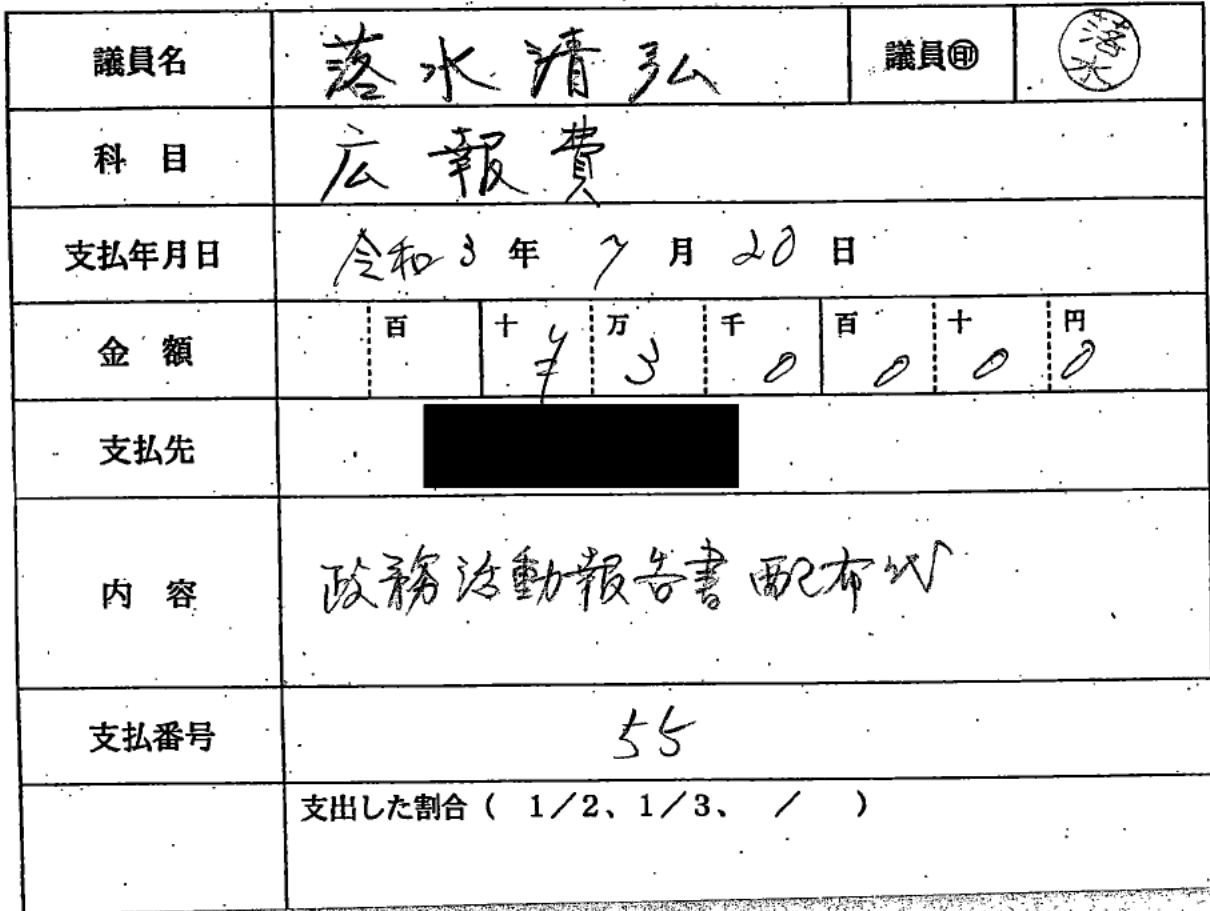 議員名 落水清弘 議員㊞ 落水
科 目 広報費
支払年月日 令和3年 7月 20日
金 額 百 十 ¥ 万 3 千 0 百 0 十 0 円 0
支払先
内 容 政務活動報告書配布代
支払番号 55
支出した割合( 1/2、1/3、 / )